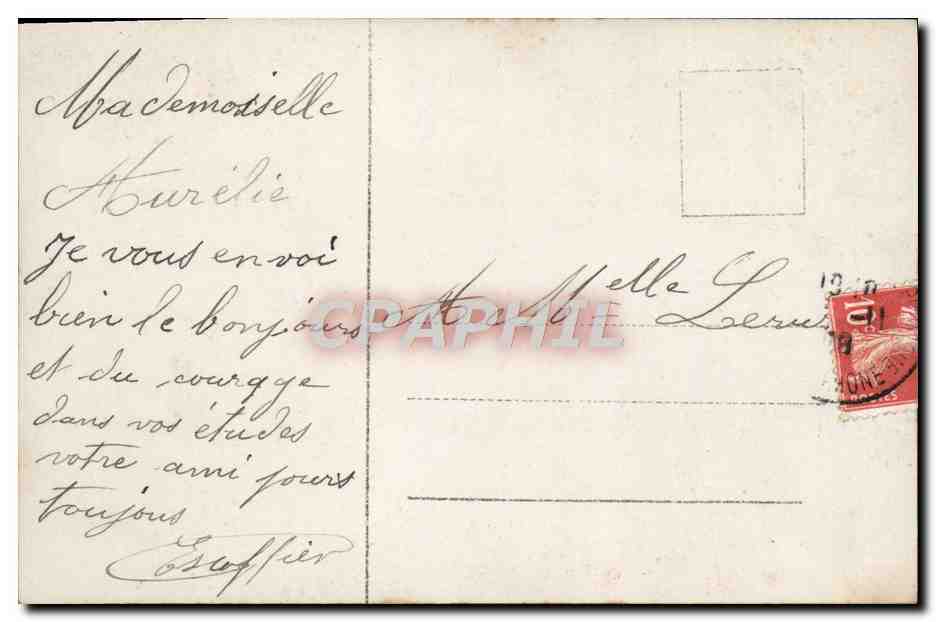 Mademoiselle
Aurélie
Je vous envoi
bien le bonjours
et du courage
dans vos études
votre ami jours
toujous
Escoffier
A Melle
CPAPHIL
10
POSTES